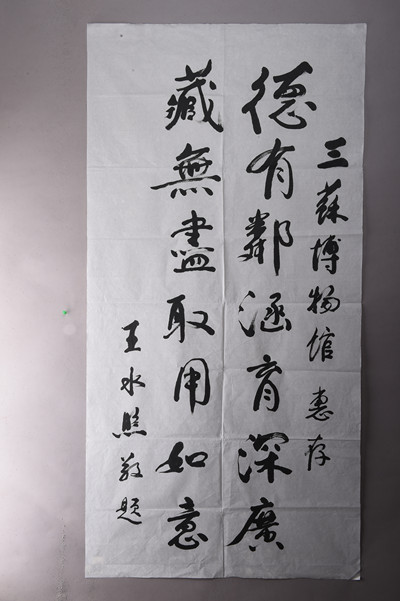 三蘇博物馆 惠存
德有鄰涵育深廣
藏無盡取用如意
王水照敬题